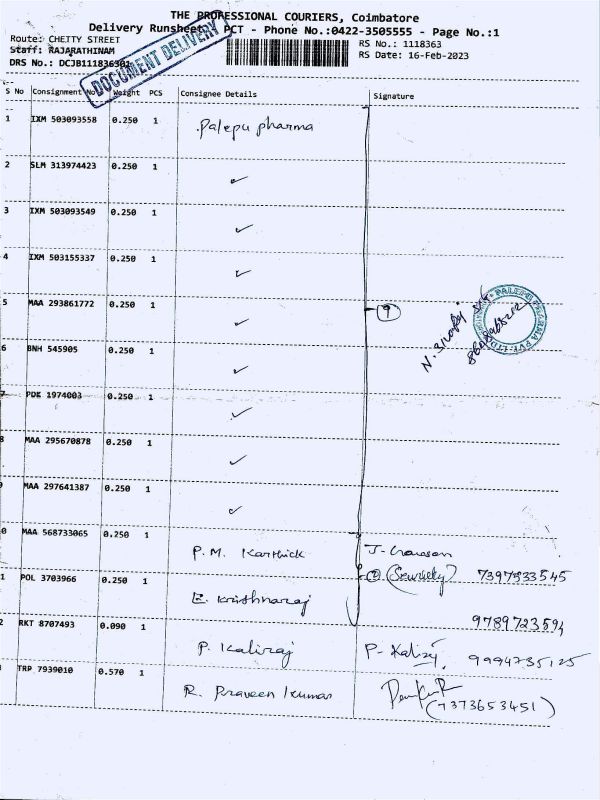 THE PROFESSIONAL COURIERS, Coimbatore
Delivery Runsheet PCT - Phone No.:0422-3505555 - Page No.:1
Route: CHETTY STREET
RS No.: 1118363
Staff: RAJARATHINAM
RS Date: 16-Feb-2023
DRS No.: DCJB111836301
DOCUMENT DELIVERY
S No Consignment No Weight PCS Consignee Details Signature
1 IXM 503093558 0.250 1 Palepu pharma
2 SLM 313974423 0.250 1 ✓
3 IXM 503093549 0.250 1 ✓
4 IXM 503155337 0.250 1 ✓
5 MAA 293861772 0.250 1 ✓ 9
PALEPU PHARMA PVT. LTD
6 BNH 545905 0.250 1 ✓
7 PDK 1974003 0.250 1 ✓
8 MAA 295670878 0.250 1 ✓
9 MAA 297641387 0.250 1 ✓
0 MAA 568733065 0.250 1 P.M. Karthick
1 POL 3703966 0.250 1 E. Krishnaraj 2 (Security) 7397533545
2 RKT 8707493 0.090 1 P. Kaliraj P- Kaliraj, 9994735125
TRP 7939010 0.570 1 R. Praveen Kumar
(7373653451)